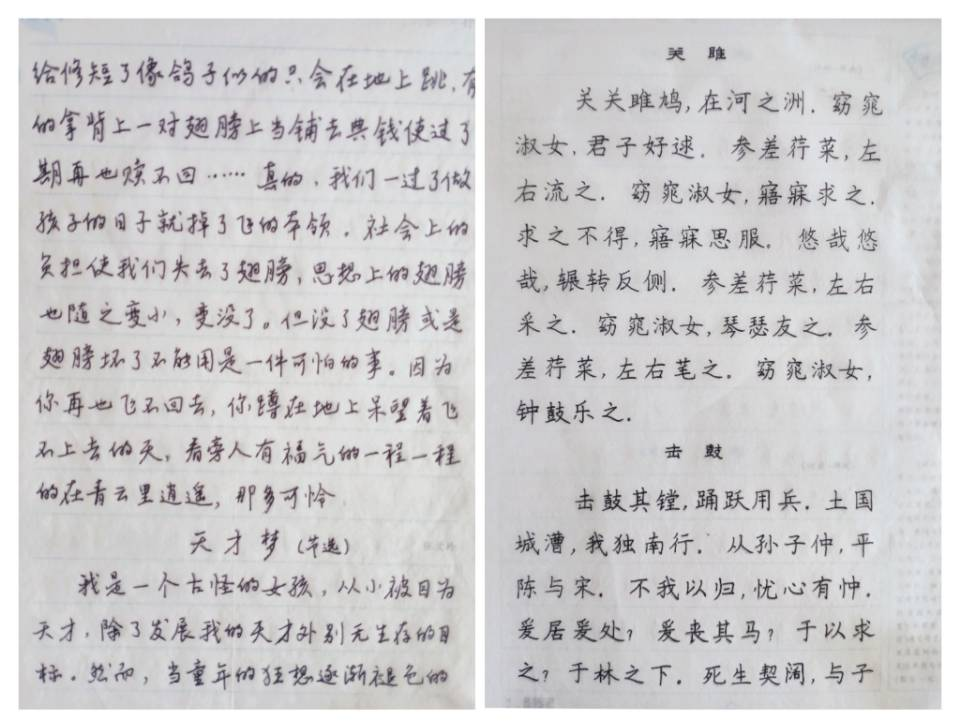 给修短了像鸽子似的只会在地上跳，有
的拿背上一对翅膀上当铺去典钱使过了
期再也赎不回……真的，我们一过了做
孩子的日子就掉了飞的本领。社会上的
负担使我们失去了翅膀，思想上的翅膀
也随之变小，变没了。但没了翅膀或是
翅膀坏了不能用是一件可怕的事。因为
你再也飞不回去，你蹲在地上呆望着飞
不上去的天，看旁人有福气的一程一程
的在青云里逍遥，那多可怜
天才梦（节选）
我是一个古怪的女孩，从小被目为
天才，除了发展我的天才外别无生存的目
标。然而，当童年的狂想逐渐褪色的
关雎
关关雎鸠，在河之洲．窈窕
淑女，君子好逑．参差荇菜，左
右流之．窈窕淑女，寤寐求之．
求之不得，寤寐思服．悠哉悠
哉，辗转反侧．参差荇菜，左右
采之．窈窕淑女，琴瑟友之．参
差荇菜，左右芼之．窈窕淑女，
钟鼓乐之．
击鼓
击鼓其镗，踊跃用兵．土国
城漕，我独南行．从孙子仲，平
陈与宋．不我以归，忧心有忡．
爰居爰处？爰丧其马？于以求
之？于林之下．死生契阔，与子